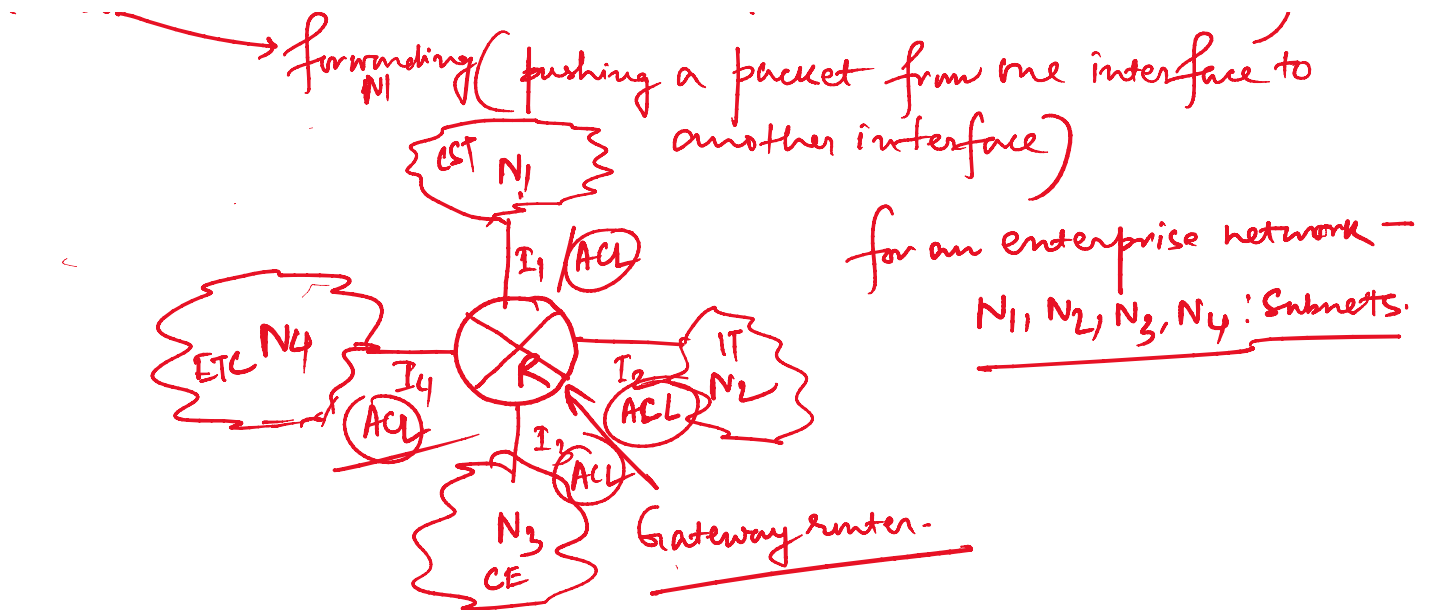 forwarding (pushing a packet from one interface to
N1
another interface)
CST N1
for an enterprise network -
I1 ACL
N1, N2, N3, N4 : Subnets.
ETC N4
IT
N2
R
I4
I2
ACL
ACL
ACL
N3
CE
Gateway router.